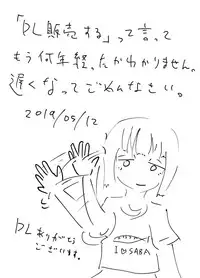 「DL販売する」って言って
もう何年経ったかわかりません。
遅くなってごめんなさい。
2019/05/12
DL
ありがとう
ございます。
I♡SABA